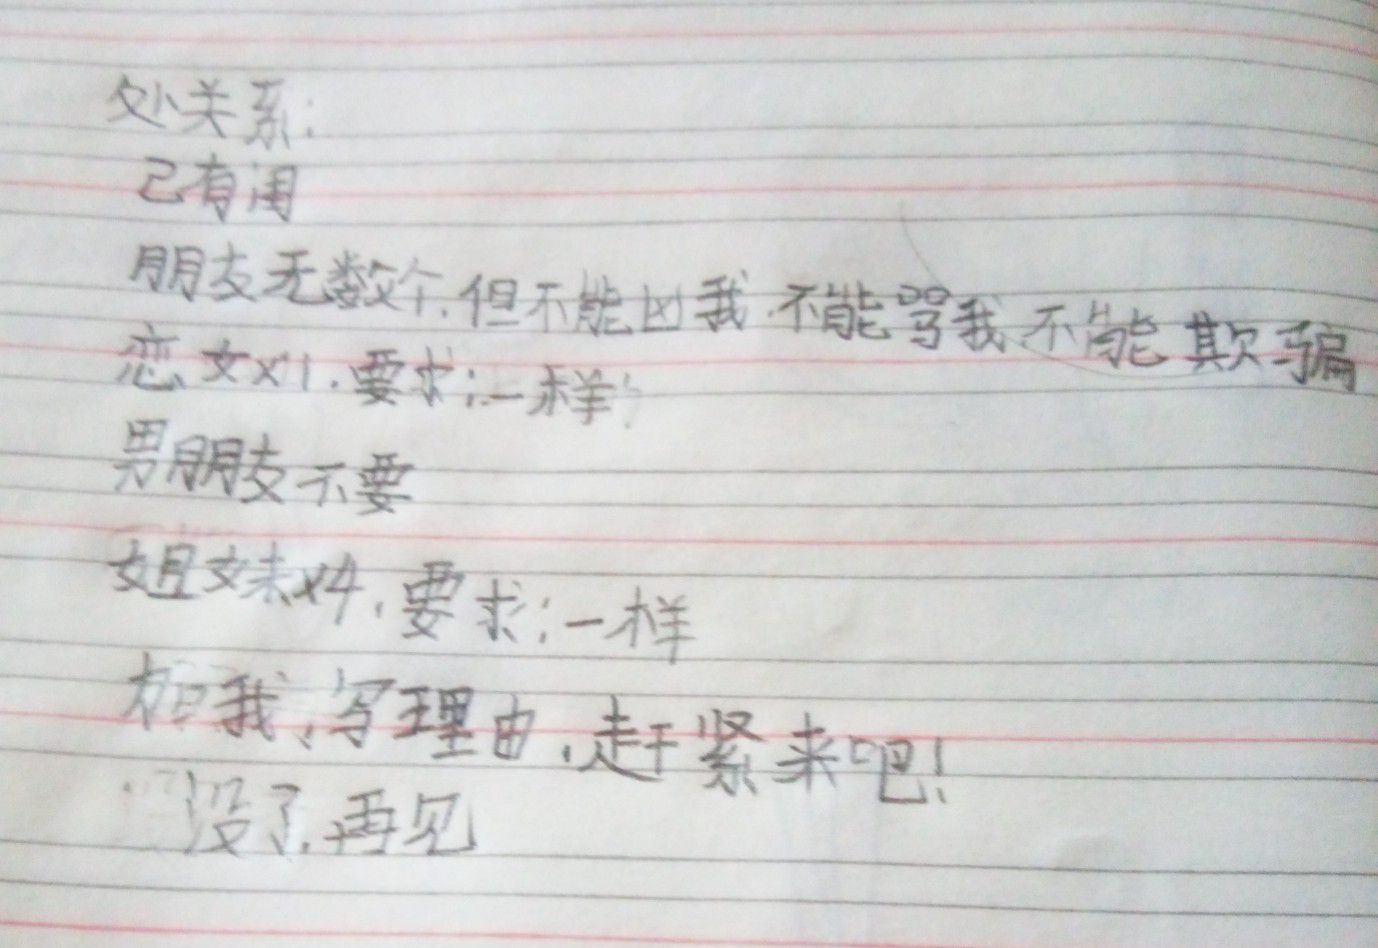 处关系:
己有闺
朋友无数个,但不能凶我,不能骂我不能欺骗
恋女x1.要求:一样
男朋友不要
姐妹x4,要求:一样
加我,写理由,赶紧来吧!
没了,再见